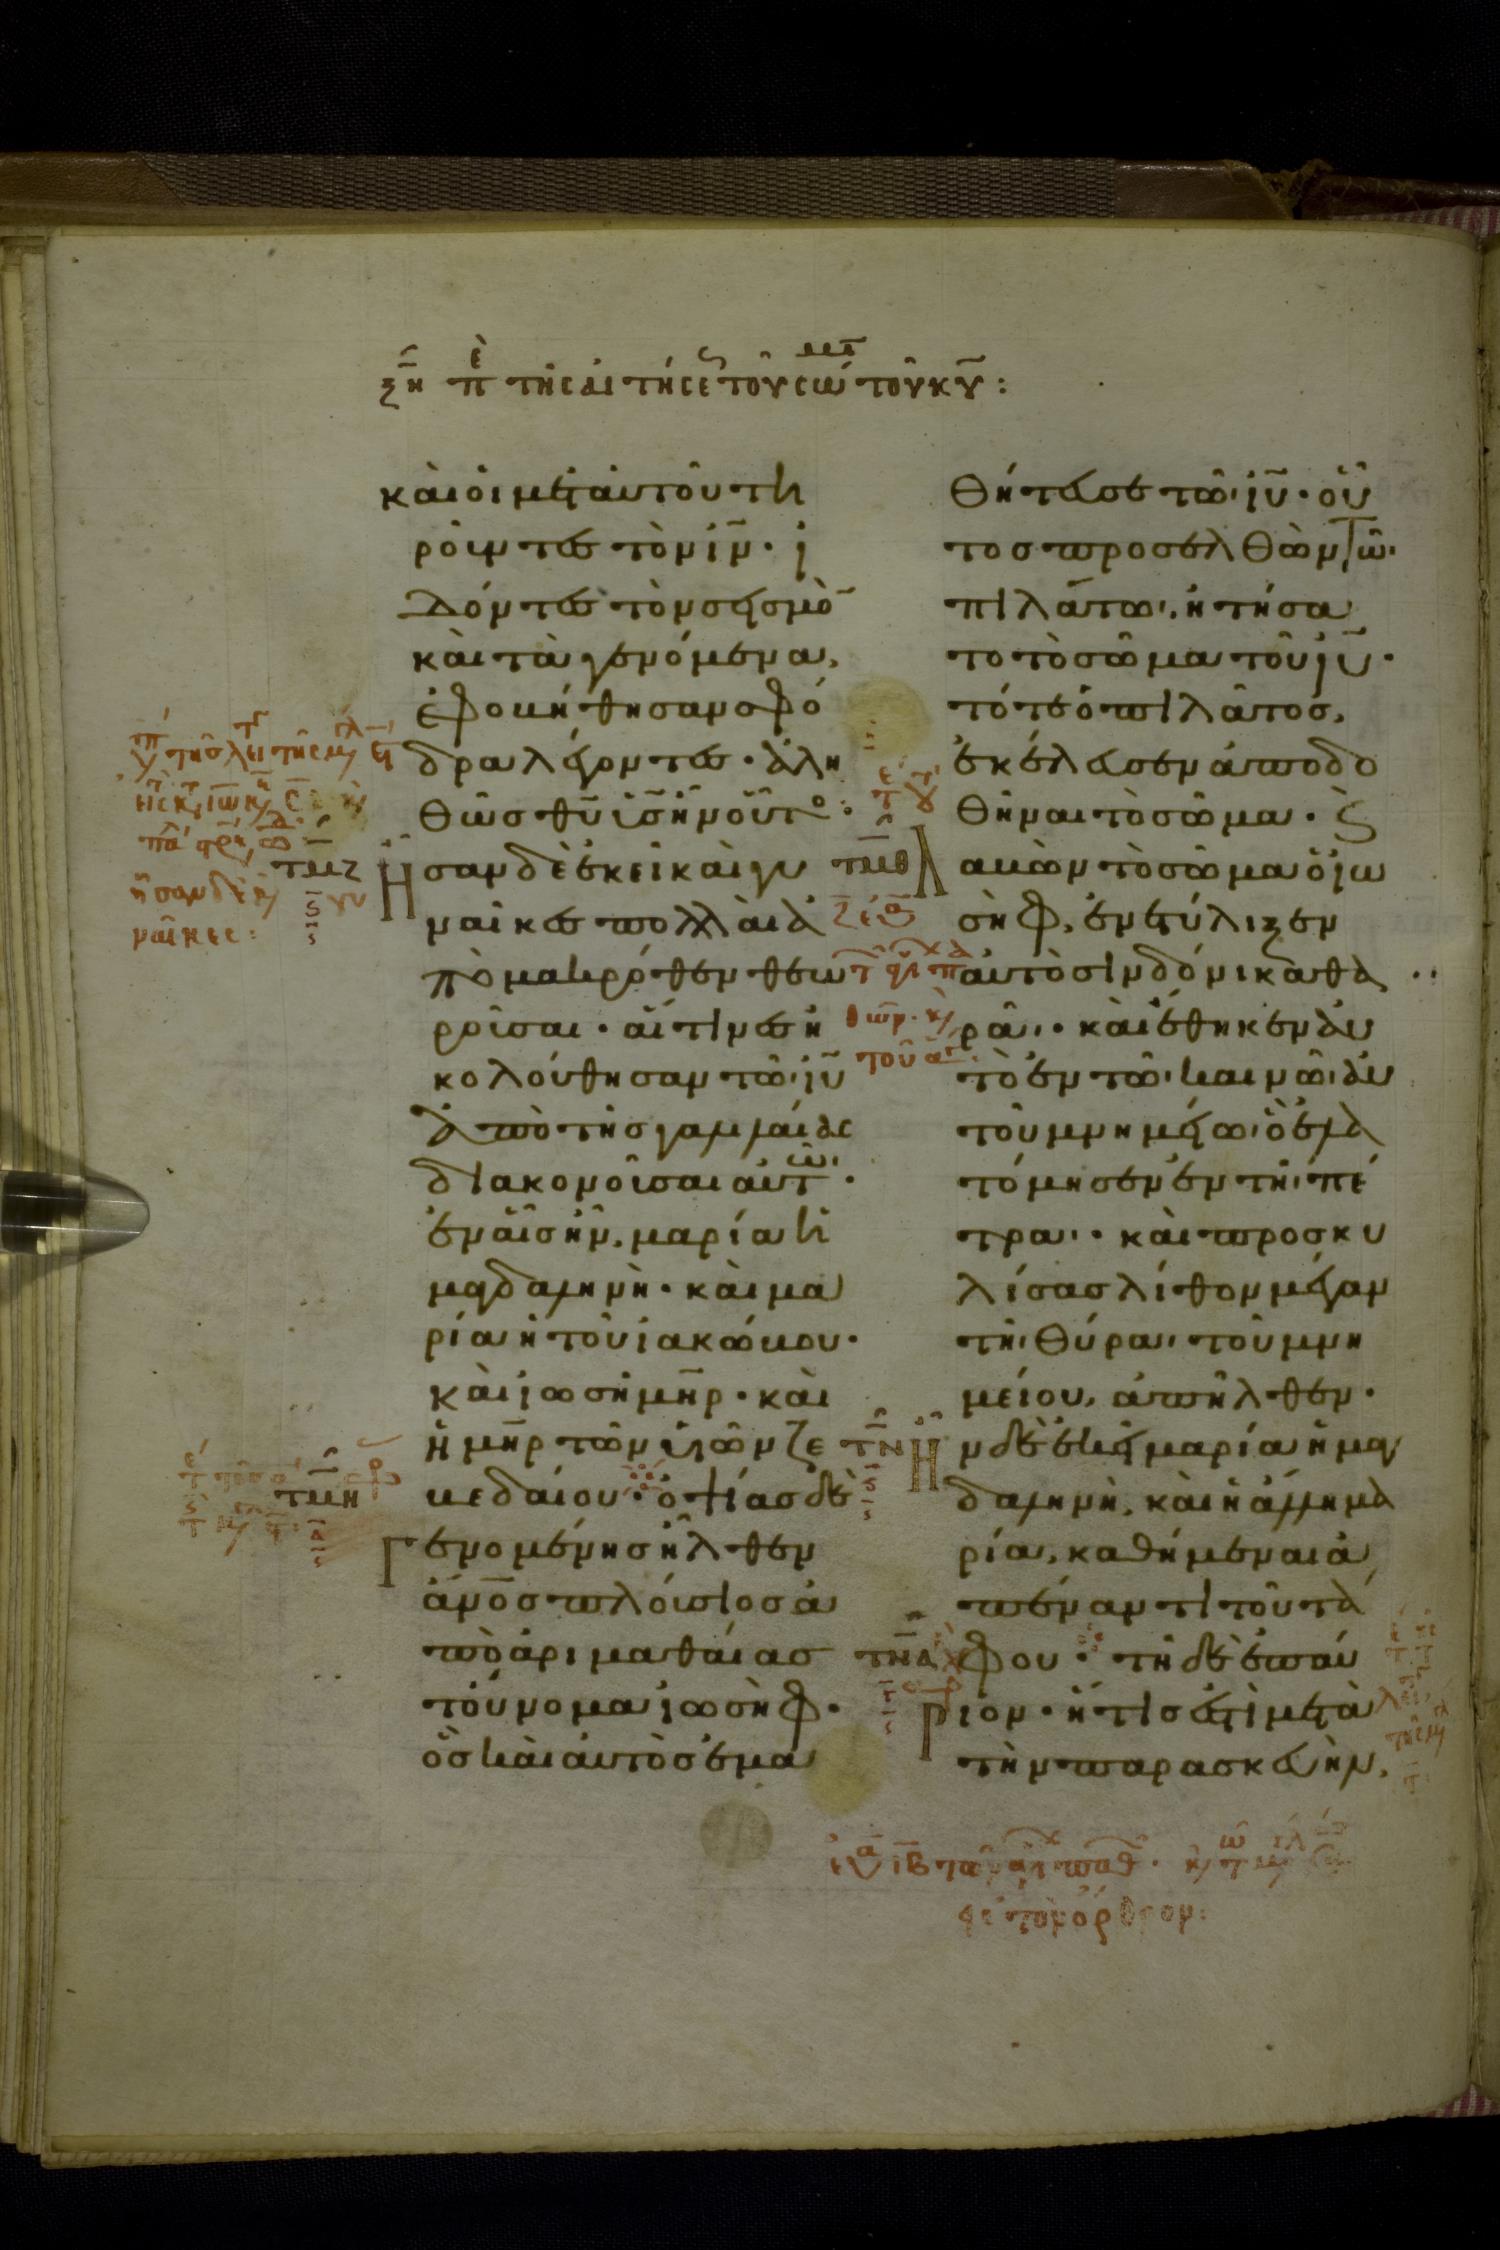 ξη πε τῆς αἰτήσε τοῦ σώματ τοῦ κυ:
καὶ οἱ μετ αὐτοῦ τη
ροῦντες τὸν ιν· ἰ
δόντες τὸν σεισμὸ
καὶ τὰ γενόμενα,
ἐφοβήθησαν σφό
δρα λέγοντες· ἀλη
θῶς θυ υἱς ἦν οὗτος:
Ησαν δὲ ἐκεῖ καὶ γυ
ναῖκες πολλαὶ ἀ
πὸ μακρόθεν θεω
ροῦσαι· αἵτινες ἠ
κολούθησαν τῶ ιυ
ἀπὸ τῆς γαλιλαίας
διακονοῦσαι αὐτῶ·
ἐν αἷς ἦν, μαρία ἡ
μαγδαληνὴ· καὶ μα
ρία ἡ τοῦ ἰακώβου·
καὶ ἰωσῆ μηρ· καὶ
ἡ μηρ τῶν υἱῶν ζε
βεδαίου· ὀψίας δὲ
Γενομένης ἦλθεν
ανος πλούσιος ἀ
πὸ ἀριμαθαίας
τοὔνομα ἰωσὴφ·
ὃς καὶ αὐτὸς ἐμα
θήτευσε τῶ ιυ· οὗ
τος προσελθὼν τῶ
πιλάτω, ἠτήσα
το τὸ σῶμα τοῦ ιυ·
τότε ὁ πιλᾶτος,
ἐκέλευσεν ἀποδο
θῆναι τὸ σῶμα· ϗ
Λαβὼν τὸ σῶμα ὁ ἰω
σὴφ, ἐνετύλιξεν
αὐτὸ σινδόνι καθα
ρᾶ· καὶ ἔθηκεν αὐ
τὸ ἐν τῶ καινῶ αὐ
τοῦ μνημείω ὃ ἐλα
τόμησεν ἐν τῆ πέ
τρα· καὶ προσκυ
λίσας λίθον μέγαν
τῆ θύρα τοῦ μνη
μείου, ἀπῆλθεν·
Ην δὲ ἐκεῖ μαρία ἡ μαγ
δαληνὴ, καὶ ἡ ἄλλη μα
ρία, καθήμεναι ἀ
πέναντι τοῦ τά
φου· τῆ δὲ ἐπαύ
ριον· ἥτις ἐστὶ μετὰ
τὴν παρασκευὴν,
τμζ
τμη
τμθ
τν
τνα
ἦσαν δὲ ἐκεῖ γυ
ναῖκες:
εἰς τὸν ὄρθρον: